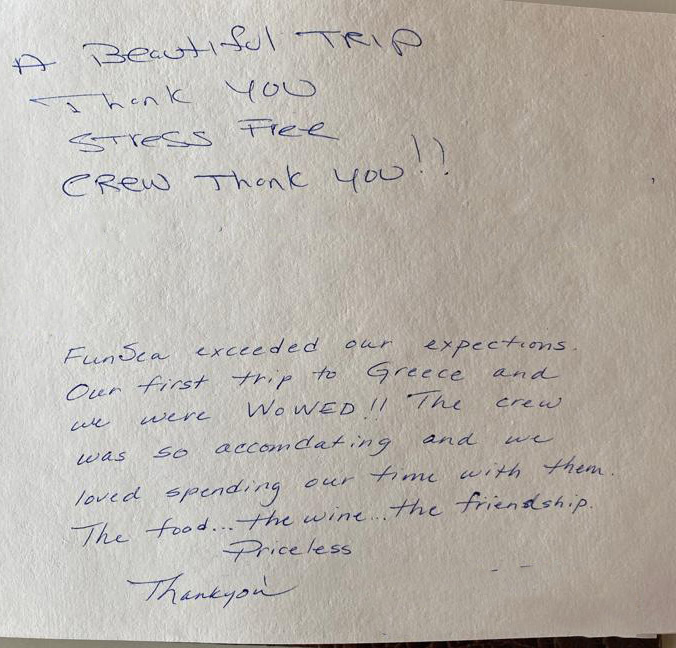 A Beautiful TRIP
Thank YOU
STRESS Free
CREW Thank you!!
FunSea exceeded our expections.
Our first trip to Greece and
we were WOWED!! The crew
was so accomdating and we
loved spending our time with them.
The food...the wine...the friendship.
Priceless
Thankyou